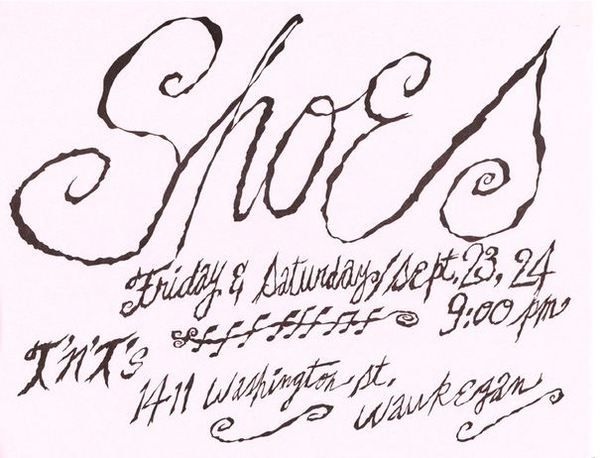 Shoes
Friday & Saturday/Sept. 23, 24
9:00 pm
T'n'T's
1411 Washington St.
Waukegan